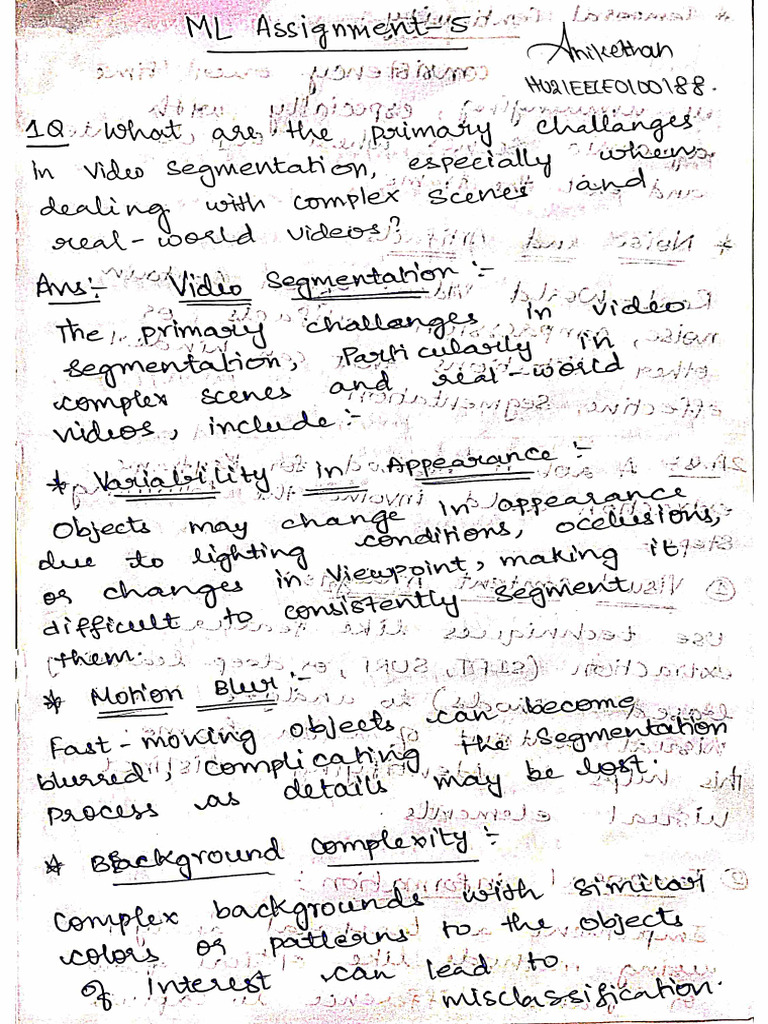 ML Assignment-5
Anikethan
HU21EECE0100188.
1Q What are the primary challanges
in video segmentation, especially when
dealing with complex scenes and
real-world videos?
Ans:- Video Segmentation:-
The primary challanges in video
segmentation, Particularly in
complex scenes and real-world
videos, include:-
* Variability in Appearance:-
Objects may change in appearance
due to lighting conditions, occlusions,
or changes in viewpoint, making it
difficult to consistently segment
them.
* Motion Blur:-
Fast-moving objects can become
blurred, complicating the segmentation
process as details may be lost.
* Background Complexity:-
Complex backgrounds with similar
colors or patterns to the objects
of interest can lead to
misclassification.